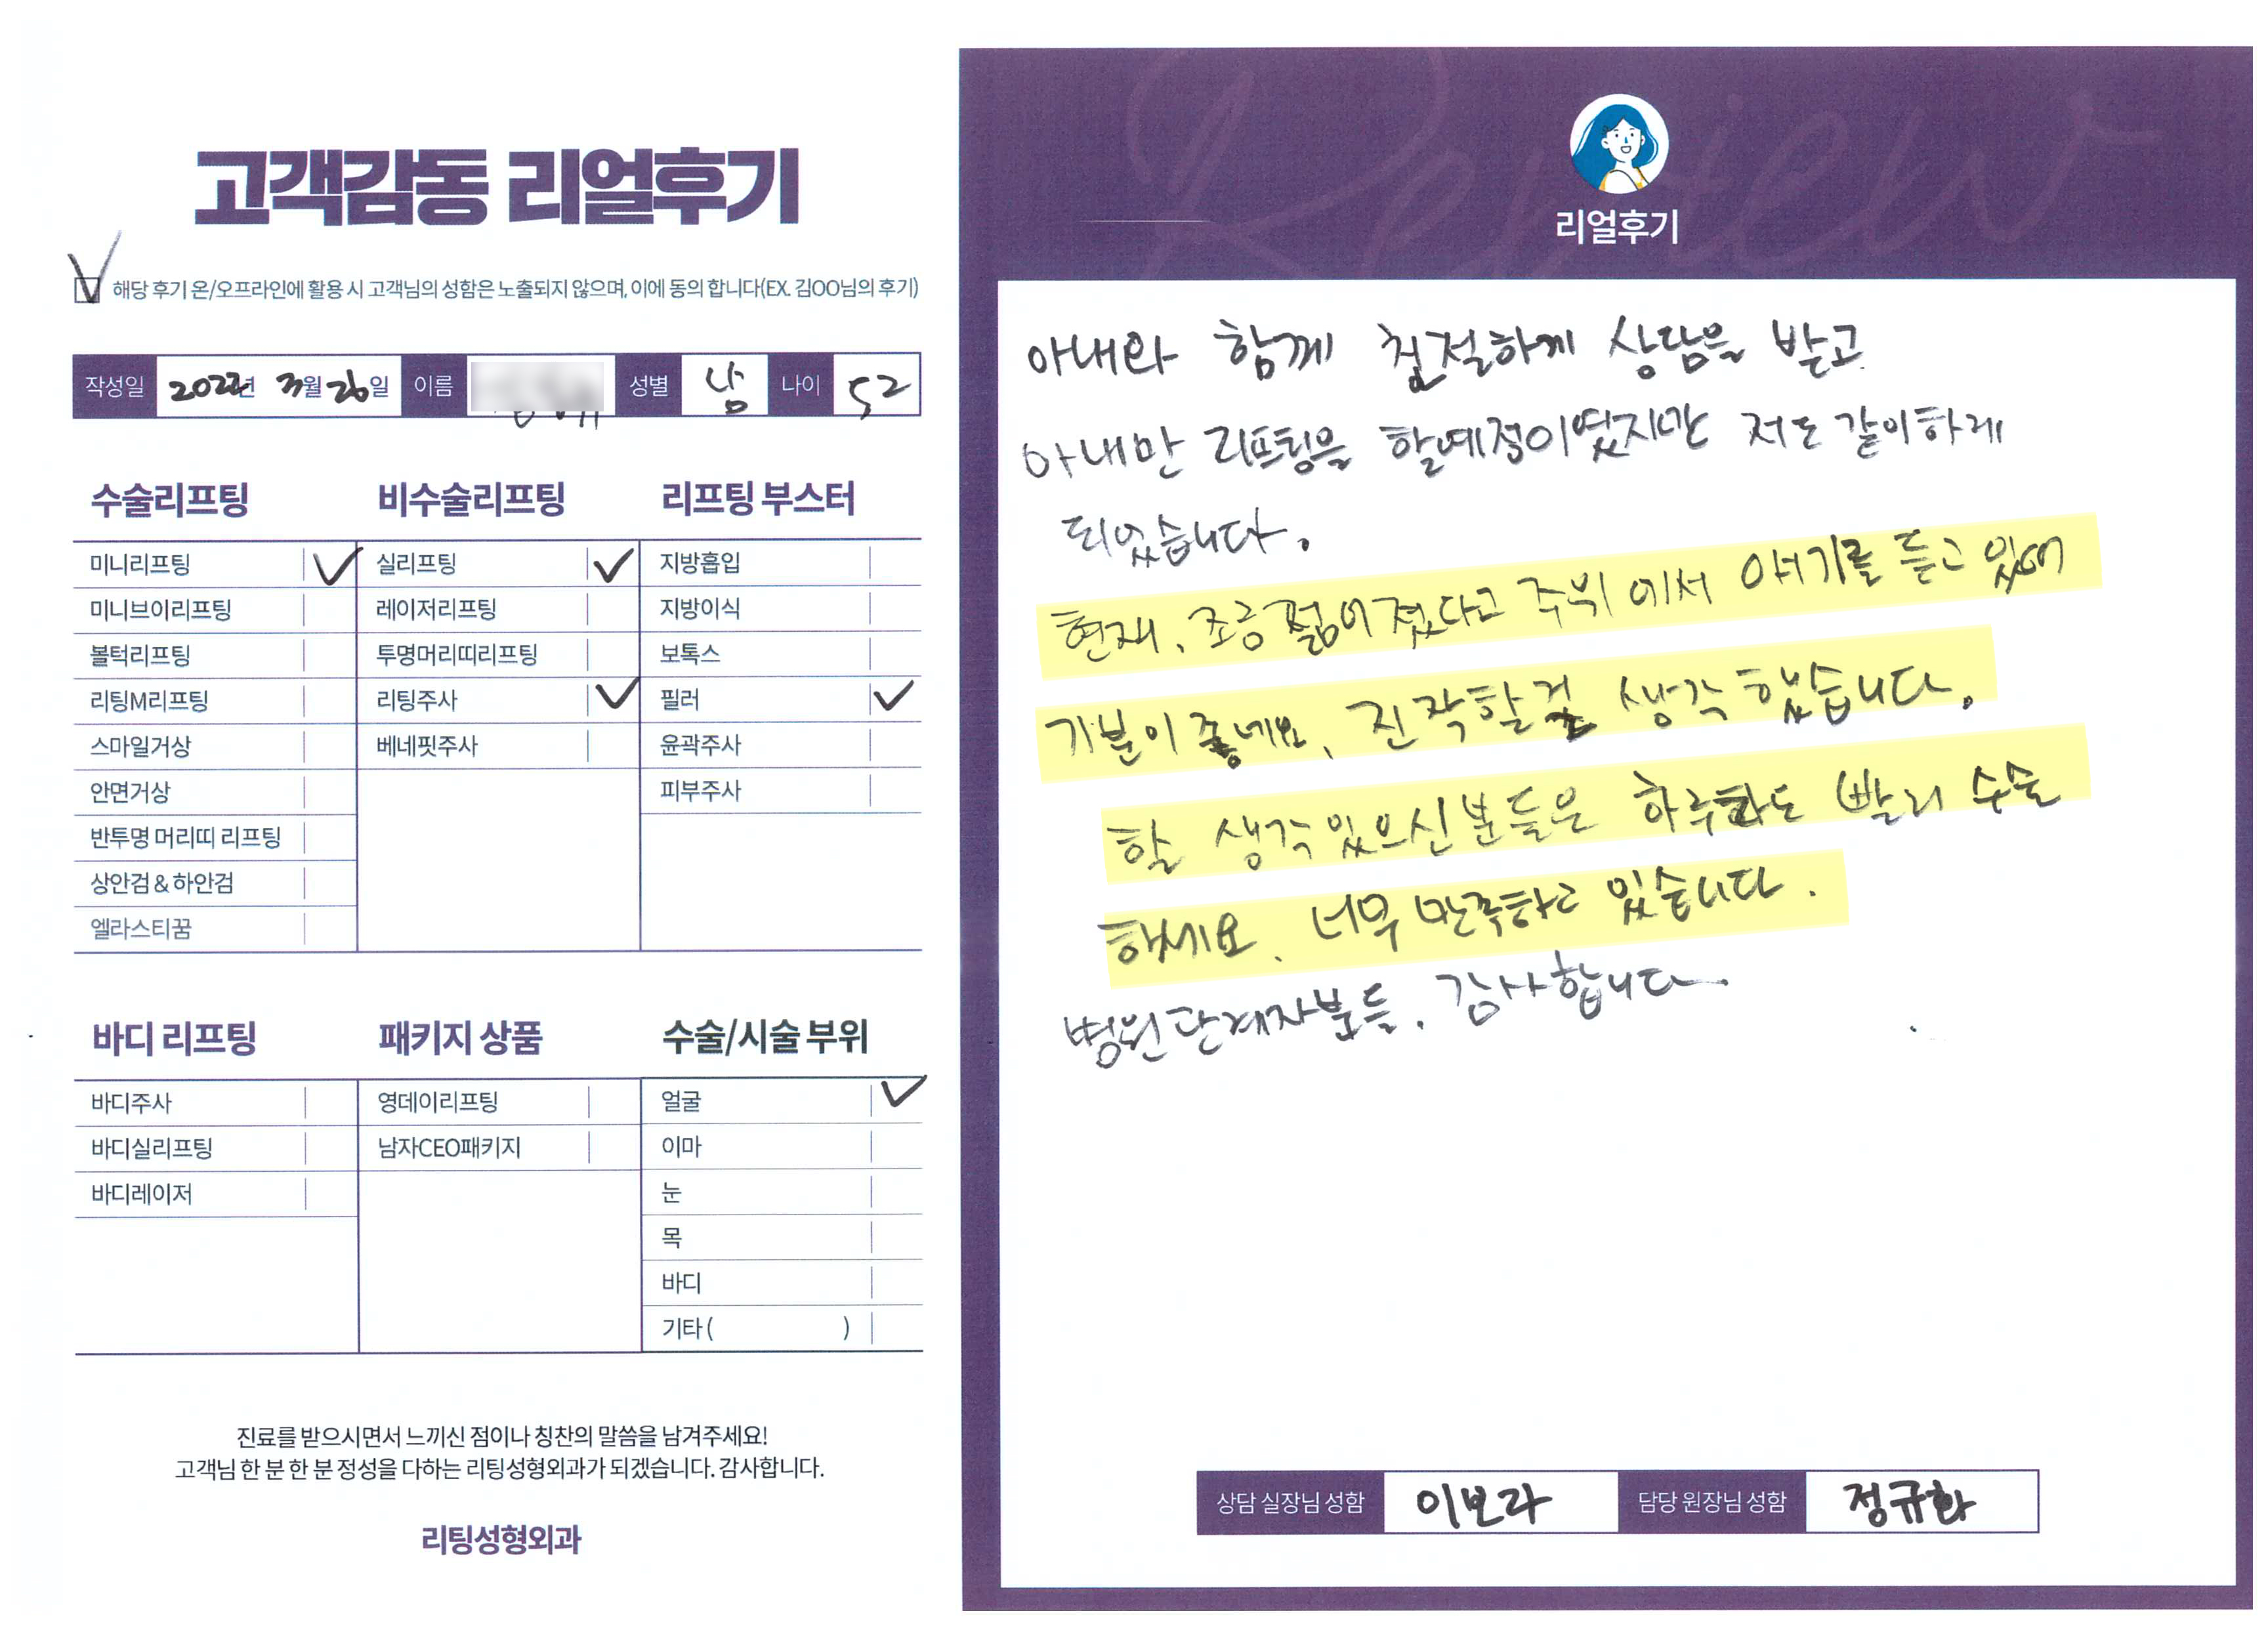 고객감동 리얼후기
해당 후기 온/오프라인에 활용 시 고객님의 성함은 노출되지 않으며, 이에 동의 합니다(EX. 김OO님의 후기)
작성일 2022년 3월 26일 이름 성별 남 나이 52
수술리프팅 비수술리프팅 리프팅 부스터
미니리프팅 실리프팅 지방흡입
미니브이리프팅 레이저리프팅 지방이식
볼턱리프팅 투명머리띠리프팅 보톡스
리팅M리프팅 리팅주사 필러
스마일거상 베네핏주사 윤곽주사
안면거상 피부주사
반투명 머리띠 리프팅
상안검 & 하안검
엘라스티꿈
바디 리프팅 패키지 상품 수술/시술 부위
바디주사 영데이리프팅 얼굴
바디실리프팅 남자CEO패키지 이마
바디레이저 눈
목
바디
기타 ( )
진료를 받으시면서 느끼신 점이나 칭찬의 말씀을 남겨주세요!
고객님 한 분 한 분 정성을 다하는 리팅성형외과가 되겠습니다. 감사합니다.
리팅성형외과
Review
리얼후기
아내와 함께 친절하게 상담을 받고
아내만 리프팅을 할예정이였지만 저도 같이하게
되었습니다.
현재, 조금 젊어졌다고 주위에서 얘기를 듣고 있어
기분이 좋네요, 진작할걸 생각 했습니다.
할 생각있으신분들은 하루라도 빨리 수술
하세요. 너무 만족하고 있습니다.
병원관계자분들, 감사합니다.
상담 실장님 성함 이보라 담당 원장님 성함 정규화